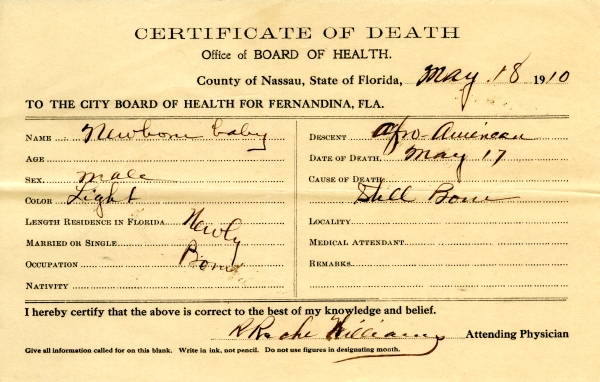 CERTIFICATE OF DEATH
Office of BOARD OF HEALTH.
County of Nassau, State of Florida, May 18 1910
TO THE CITY BOARD OF HEALTH FOR FERNANDINA, FLA.
NAME Newborn baby
AGE
SEX male
COLOR Light
LENGTH RESIDENCE IN FLORIDA Newly
MARRIED OR SINGLE
OCCUPATION Born
NATIVITY
DESCENT Afro-American
DATE OF DEATH May 17
CAUSE OF DEATH
Still Born
LOCALITY
MEDICAL ATTENDANT
REMARKS
I hereby certify that the above is correct to the best of my knowledge and belief.
Williams Attending Physician
Give all information called for on this blank. Write in ink, not pencil. Do not use figures in designating month.